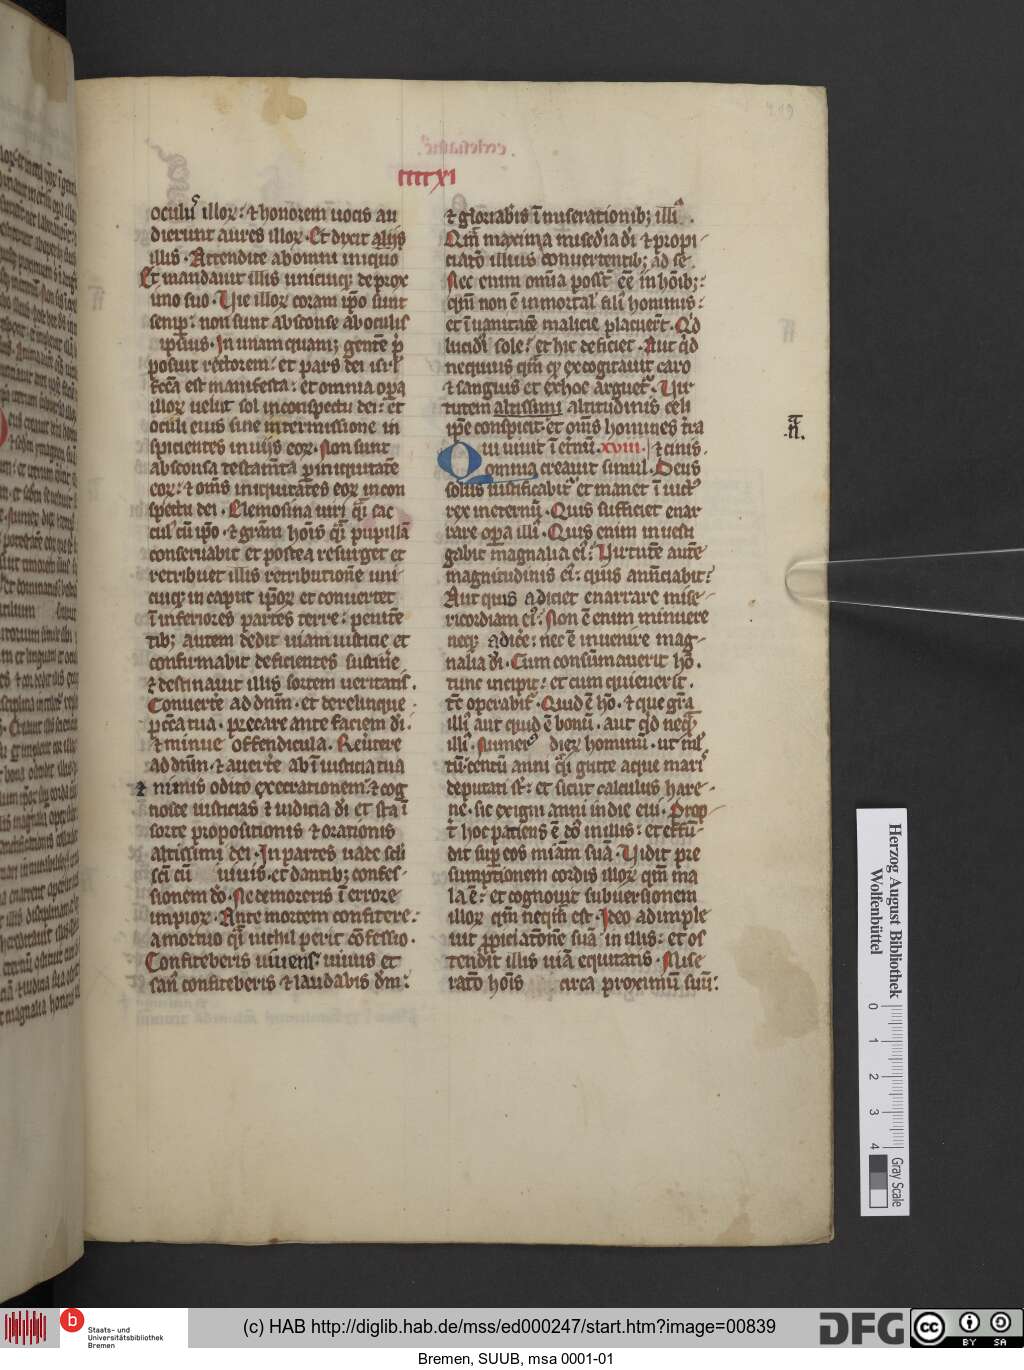 ccccxi
oculus illoꝝ: ⁊ honorem uocis au
dierunt aures illoꝝ. Et dixit aliis
illis. Attendite ab omni iniquo
Et mandauit illis unicuiqꝫ de prox
imo suo. Uie illoꝝ coram ip̄o sunt
semp̄: non sunt absconse ab oculis
ipsius. In unamquamqꝫ gentē p̄
posuit rectorem: et pars dei isrl̄
f̄cā est manifesta: et omnia oꝑa
illoꝝ uelut sol in conspectu dei: et
oculi eius sine intermissione in
spicientes in uiis eoꝝ. Non sunt
absconsa testam̄ta ꝑ iniquitatē
eoꝝ: ⁊ om̄s iniquitates eoꝝ in con
spectu dei. Elemosina uiri q̄i sac
cul᷒ cū ip̄o. ⁊ grām hoīs q̄i pupillā
conseruabit et postea resurget et
retribuet illis retributionē uni
cuiqꝫ in caput ip̄oꝝ et conuertet
ī inferiores partes terre: penitē
tibꝫ autem dedit uiam iusticie et
confirmabit deficientes sustinē
⁊ destinauit illis sortem ueritatis.
Conuerte ad dn̄m. et derelinque
pctā tua. precare ante faciem dī.
⁊ minue offendicula. Reūtere
ad dn̄m. ⁊ auerte ab īiusticia tua
⁊ nimis odito execrationem. ⁊ cog
nosce iusticias ⁊ iudicia dī et sta ī
sorte propositionis ⁊ orationis
altissimi dei. In partes uade scl̄i
sc̄i cū uiuis. et dantibꝫ confes
sionem dō. Ne demoreris ī errore
impioꝝ. Ante mortem confitere:
a mortuo q̄i nichil perit cōfessio.
Confiteberis uiuens: uiuus et
san᷒ confiteberis ⁊ laudabis dm̄:
⁊ gloriab̄is ī miserationibꝫ illi᷒.
Qm̄ magna mīsedīa dī ⁊ propi
ciatō illius conuertentibꝫ ad sē.
Nec enim om̄ia possūt ēē in hoībꝫ:
qm̄ non ē inmortal᷒ fili᷒ hominis:
et ī uanitate malicie placuerūt. Qd̄
lucidi᷒ sole: et hic deficiet. Aut qd̄
nequius qm̄ qd̄ excogitauit caro
⁊ sanguis et ex hoc arguet᷑. Uir
tutem altissimi altitudinis celi
ip̄e conspicit. et om̄s homines t̄ra
Qui uiuit ī et̄nū. xviii. ⁊ cinis.
omnia creauit simul. Deus
solus iustificabit᷑ et manet īuict᷒
rex in eternū. Quis sufficiet enar
rare oꝑa illi᷒. Quis enim inuesti
gabit magnalia ei᷒: Uirtutē autē
magnitudinis ei᷒: quis anūciabit:
Aut quis adiciet enarrare mise
ricordiam ei᷒: Non ē enim minuere
neqꝫ adic̄e: nec ē inuenire mag
nalia dī. Cum consūmauerit hō.
tunc incipit: et cum quieuerit.
tc̄ operabit᷑. Quid ē hō. ⁊ que gr̄a
illi᷒ aut quid ē bonū. aut qd̄ neqꝫ
illi᷒. Numer᷒ dieꝝ hominū. ut ml̄
tū: centū anni q̄i gutte aque mari᷒
deputati st̄: et sicut calculus hare
ne. sic exigui anni in die eui. Prop
t̄ hoc patiens ē ds̄ in illis: et effū
dit suꝑ eos miam suā. Uidit pre
sumptionem cordis illoꝝ qm̄ ma
la ē: et cognouit subuersionem
illoꝝ qm̄ neq̄ā est. Ideo adimple
uit ꝓpiciatōnē suā in illis: et os
tendit illis uiā equitatis. Mise
ratō hoīs circa proximū suū:
Herzog August Bibliothek
Wolfenbüttel
0 1 2 3 4
Gray Scale
b Staats- und
Universitätsbibliothek
Bremen
(c) HAB http://diglib.hab.de/mss/ed000247/start.htm?image=00839
DFG
cc BY SA
Bremen, SUUB, msa 0001-01